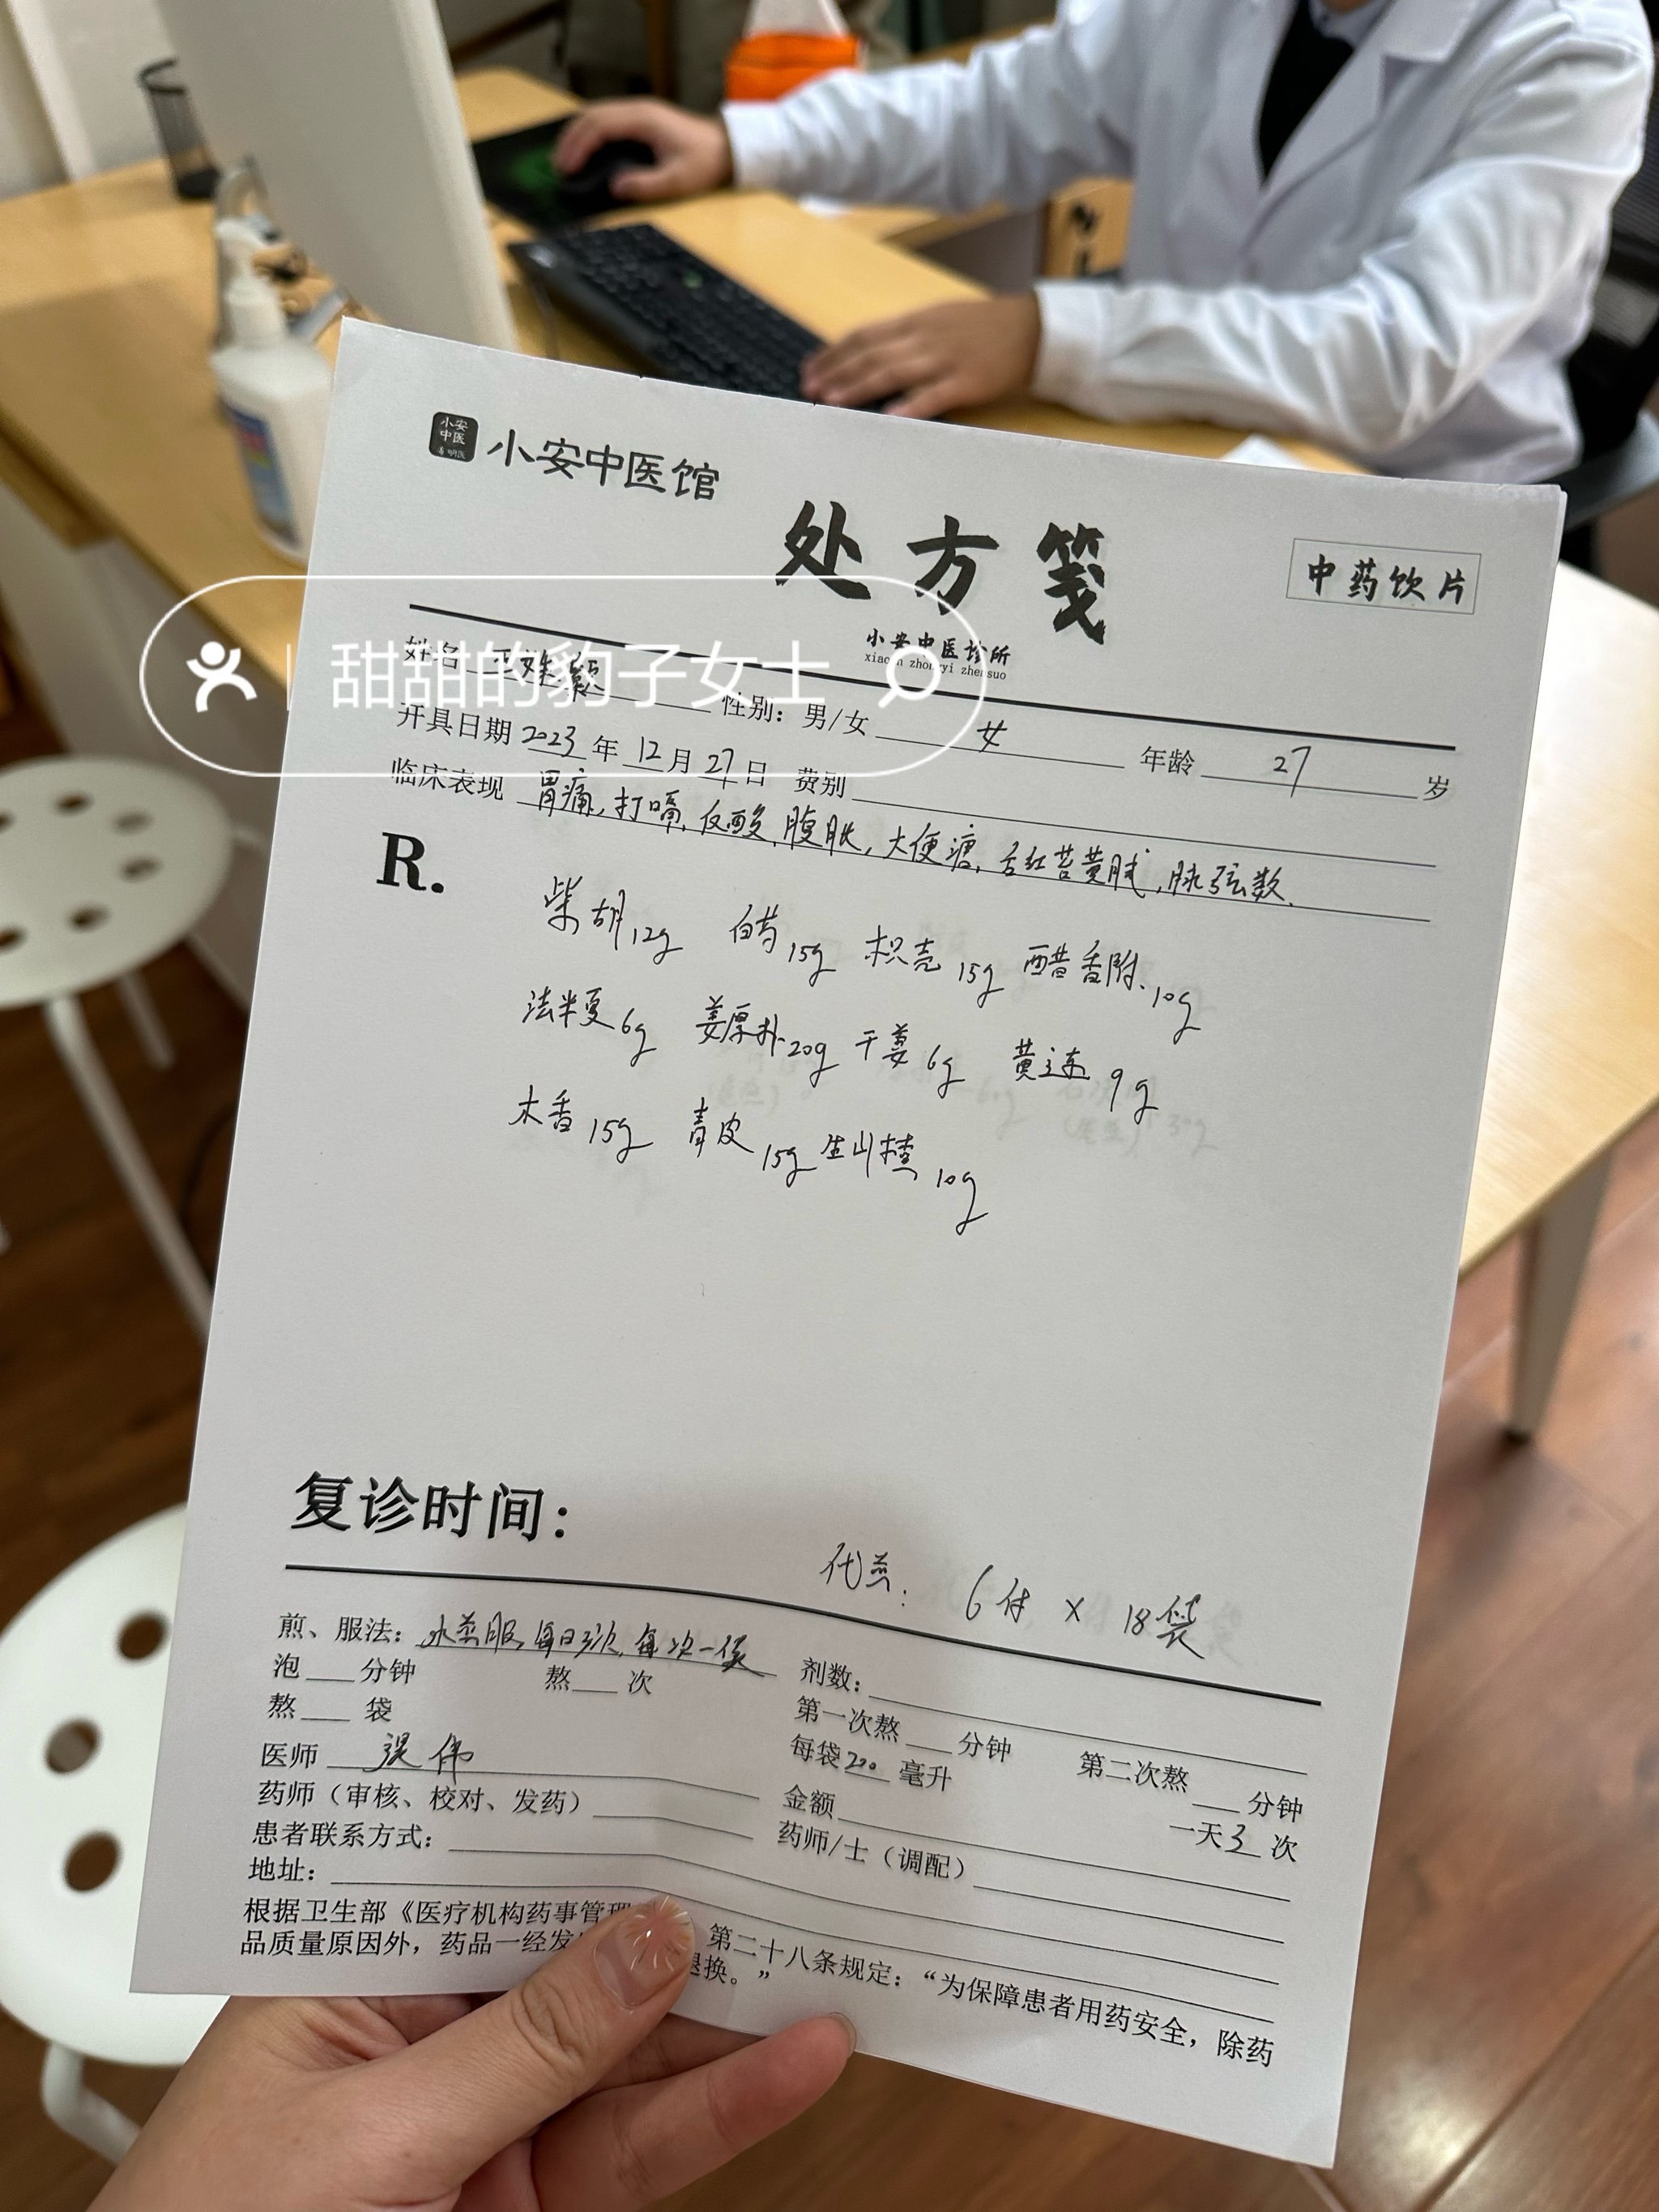 小安中医 有明医
小安中医馆
处方笺
中药饮片
小安中医诊所
xiaoan zhongyi zhensuo
甜甜的豹子女士
姓名 性别：男/女 女 年龄 27 岁
开具日期 2023 年 12 月 27 日 费别
临床表现 胃痛，打嗝，反酸，腹胀，大便溏，舌红苔黄腻，脉弦数。
R.
柴胡12g 白芍15g 枳壳15g 醋香附10g
法半夏6g 姜厚朴20g 干姜6g 黄连9g
木香15g 青皮15g 生山楂10g
复诊时间：
代煎： 6付 x 18袋
煎、服法：水煎服，每日3次，每次一袋 剂数：
泡 分钟 熬 次 第一次熬 分钟 第二次熬 分钟
熬 袋 每袋200 毫升 一天3 次
医师 伟 金额
药师（审核、校对、发药） 药师/士（调配）
患者联系方式：
地址：
根据卫生部《医疗机构药事管理 第二十八条规定：“为保障患者用药安全，除药
品质量原因外，药品一经发 退换。”